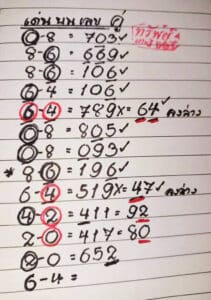 เด่น บน เลข คู่
0-8 = 703✓
8-6 = 669✓
8-6 = 106✓
6-4 = 106✓
6-4 = 789x = 64✓ ลงล่าง
0-8 = 805✓
0-8 = 099✓
* 8-6 = 196✓
6-4 = 519x = 47✓ ลงล่าง
4-2 = 411 = 92
2-0 = 417 = 80
2-0 = 652
6-4 =